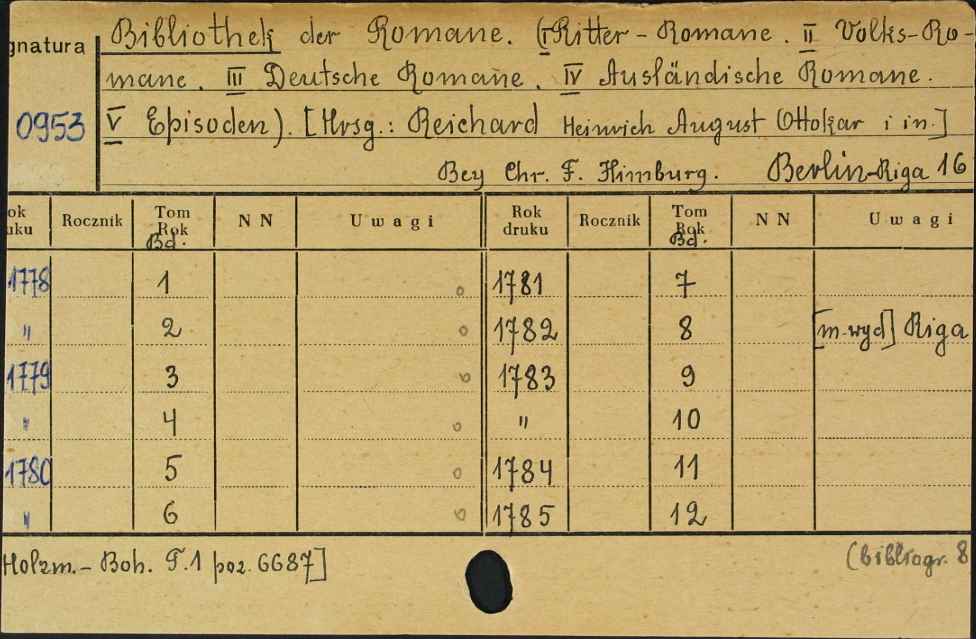 gnatura
Bibliothek der Romane. (I Ritter - Romane. II Volks-Ro-
mane. III Deutsche Romane. IV Ausländische Romane.
0953
V Episoden). [Hrsg.: Reichard Heinrich August Ottokar i in.]
Bey Chr. F. Himburg. Berlin-Riga 16
ok uku Rocznik Tom Rok Bd. NN Uwagi Rok druku Rocznik Tom Rok Bd. NN Uwagi
1778 1 o 1781 7
" 2 o 1782 8 [m-wyd] Riga
1779 3 o 1783 9
" 4 o " 10
1780 5 o 1784 11
" 6 o 1785 12
Holzm.- Boh. T.1 poz. 6687]
(bibliogr. 8